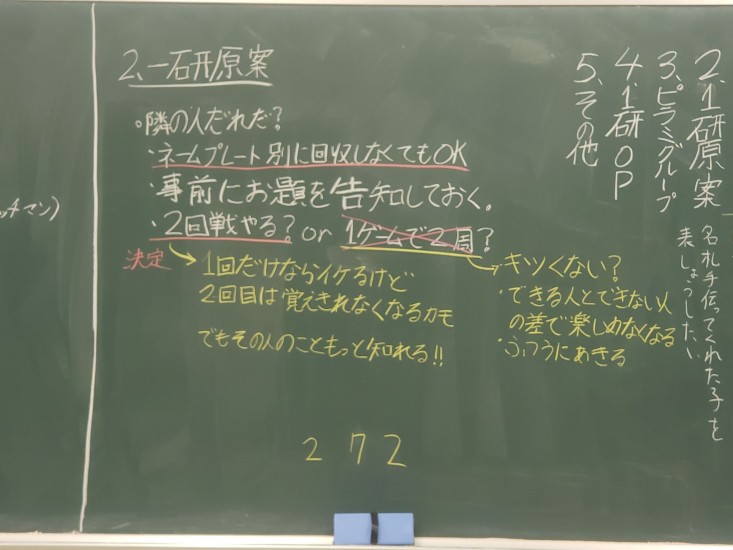 2、一石开原案
○隣の人だれだ?
・ネームプレート別に回収しなくてもOK
・事前にお題を告知しておく。
・2回戦やる? or 1ゲームで2周?
決定
1回だけならイケるけど
2回目は覚えきれなくなるカモ
でもその人のこともっと知れる!!
キツくない?
・できる人とできない人
の差で楽しめなくなる
・ふつうにあきる
2 7 2
2、1研原案
3、ピラミッグループ
4、1研OP
5、その他
名札手伝ってくれた子を
表しょうしたい
ッチマン)